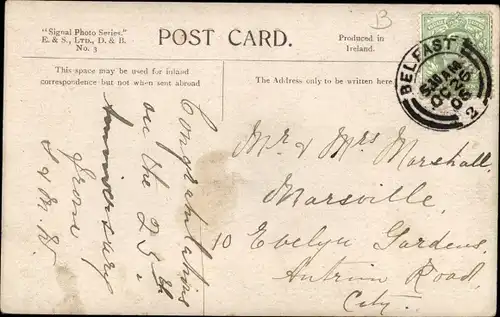 "Signal Photo Series."
E. & S., LTD., D. & B.
No. 3
POST CARD.
Produced in
Ireland.
B
BELFAST
2
This space may be used for inland
correspondence but not when sent abroad
The Address only to be written here
Congratulations
on the 25th
Anniversary
from
Mr & Mrs Marshall,
Marsville,
10 Evelyn Gardens,
Antrim Road,
City.